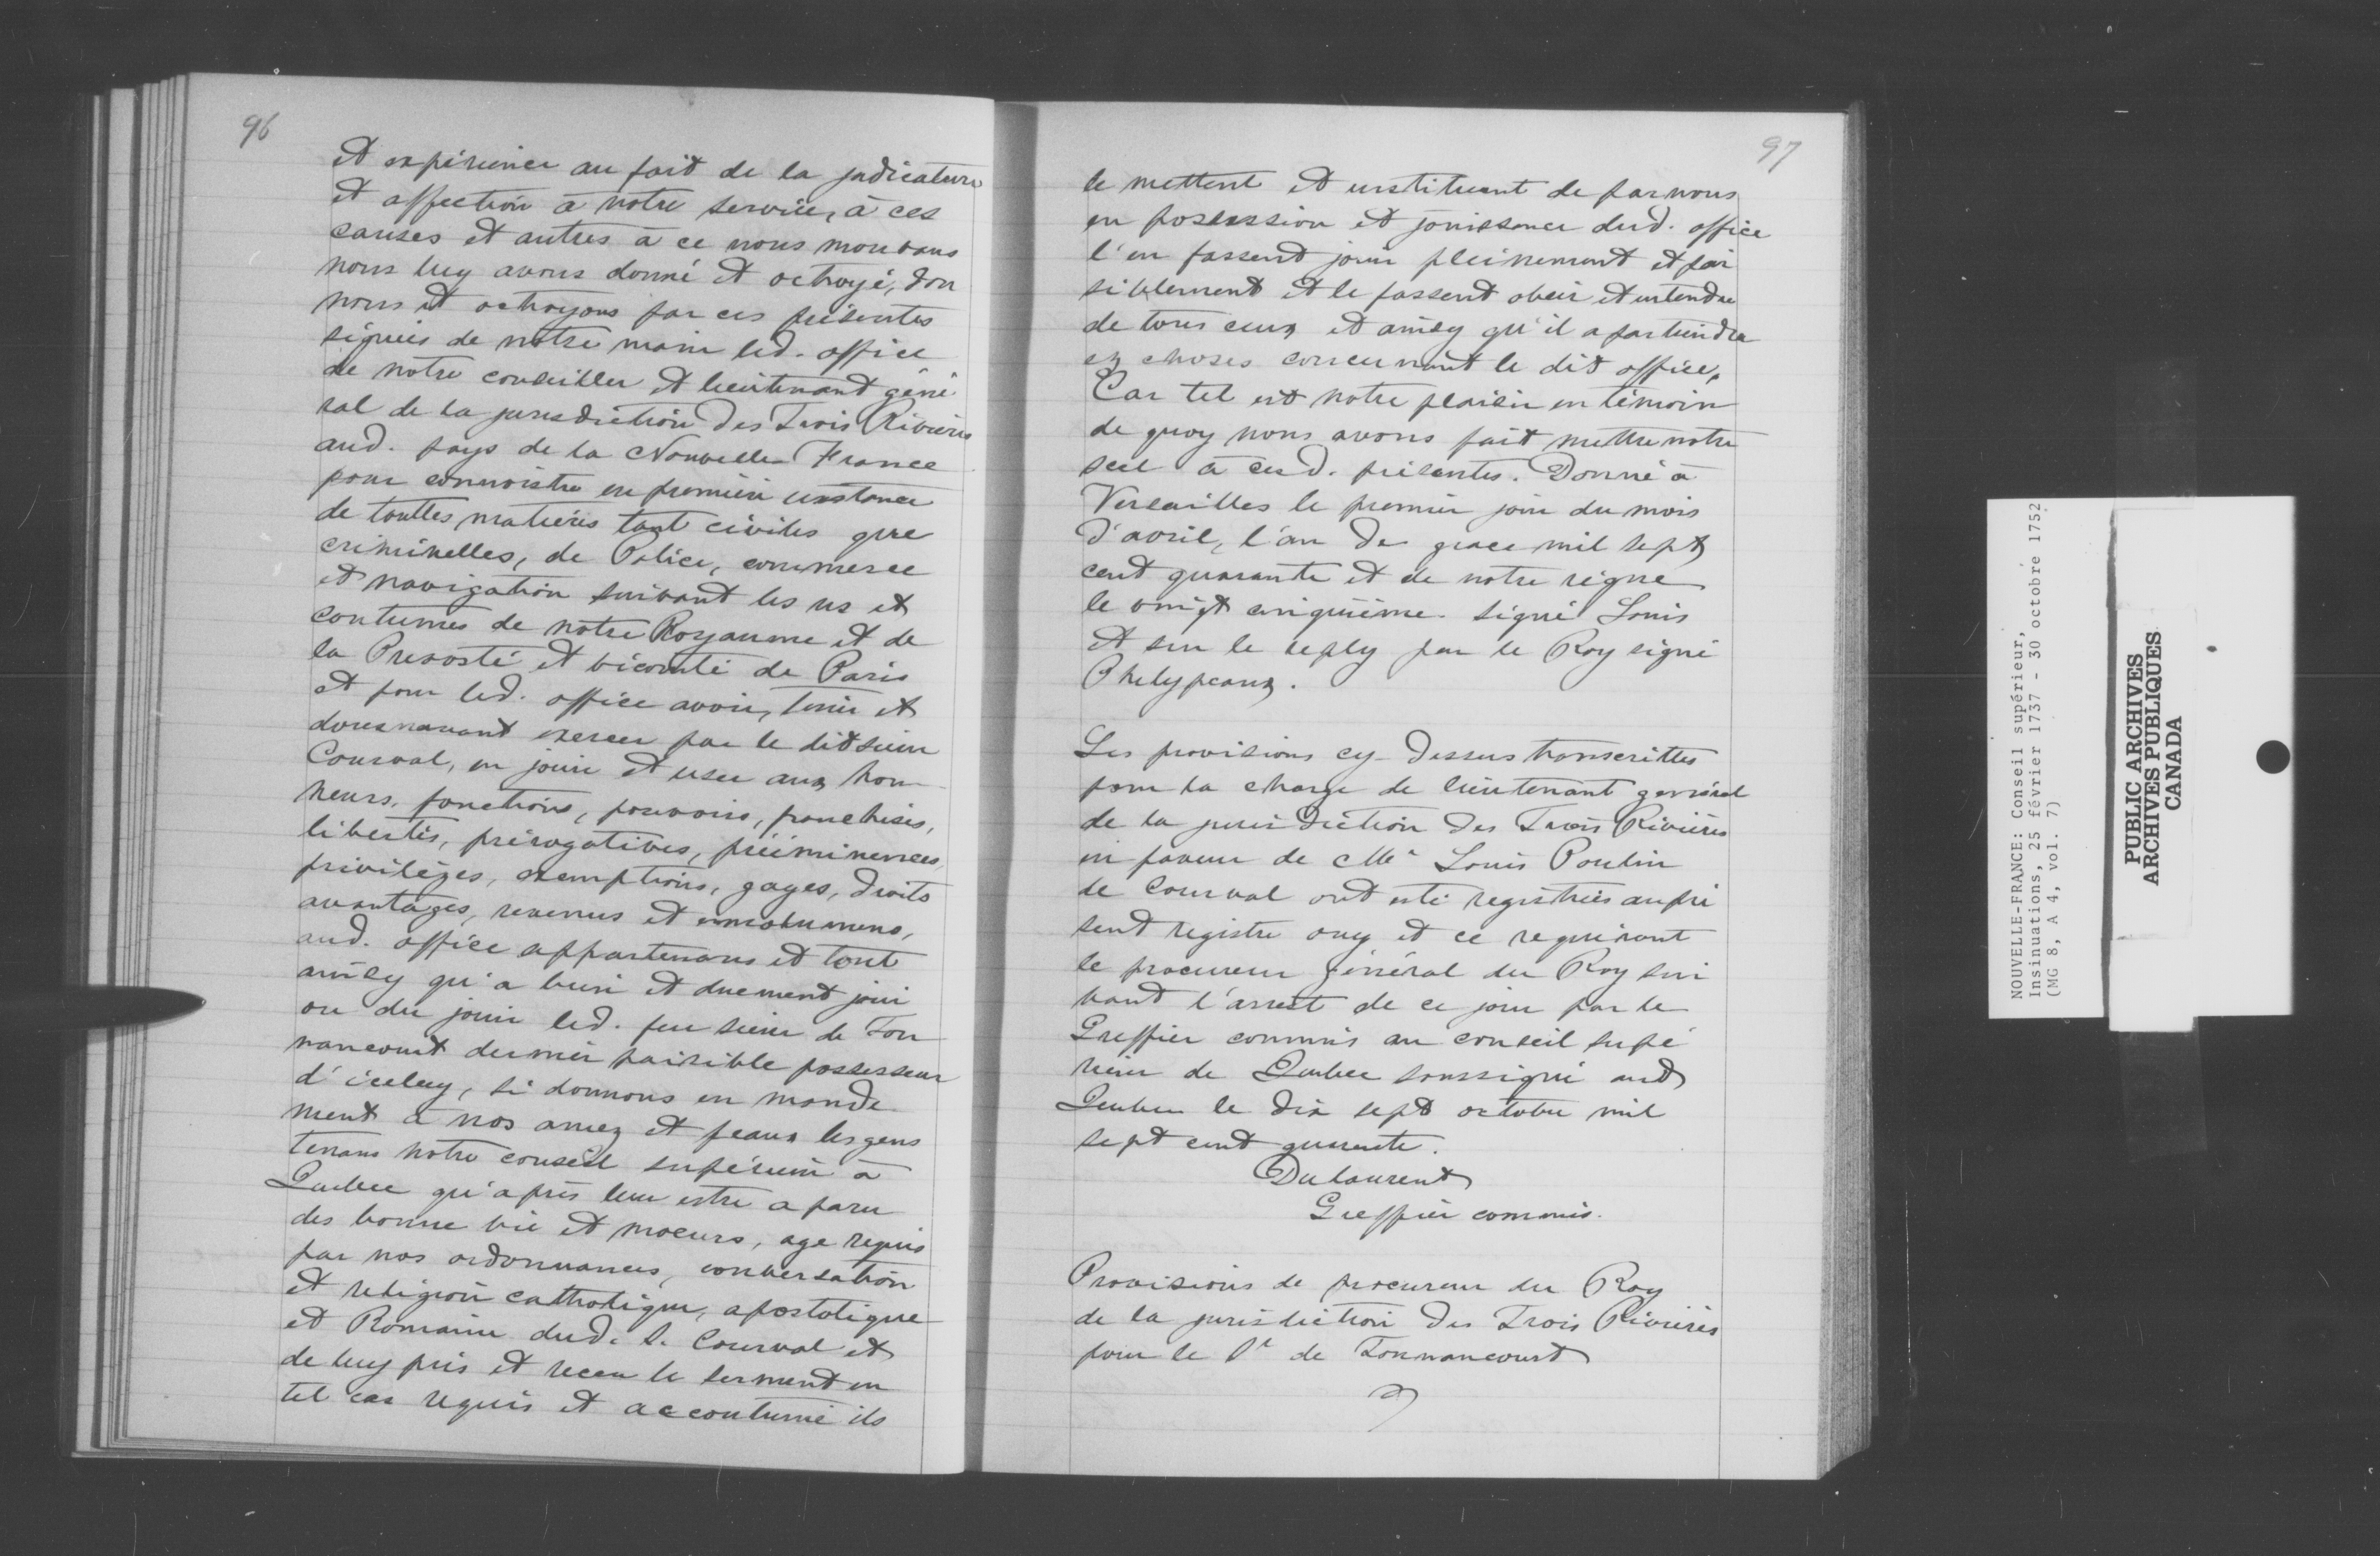 96
et expérience au fait de la judicature
et affection à notre service, à ces
causes et autres à ce nous mouvans
nous luy avons donné et octroyé, don
nons et octroyons par ces présentes
signées de notre main led. office
de notre conseiller et lieutenant géné
ral de la jurisdiction des Trois Rivières
aud. pays de la Nouvelle France
pour connoistre en première instance
de touttes matières tant civiles que
criminelles, de Police, commerce
et navigation suivant les us et
coutumes de notre Royaume et de
la Prevosté et vicomté de Paris
et pour led. office avoir, tenir et
doresnavant exercer par le dit sieur
Courval, en jouir et user aux hon
neurs, fonctions, pouvoirs, franchises,
libertés, prérogatives, prééminences,
privilèges, exemptions, gages, droits
avantages, revenus et émolumens,
aud. office appartenans et tout
ainsy qu'a bien et duement joui
ou du jouir led. feu sieur de Ton
nancourt dernier paisible possesseur
d'iceluy, si donnons en mande
ment à nos amez et feaux les gens
tenans notre conseil supérieur à
Quebec qu'après leur estre aparu
des bonne vie et moeurs, age requis
par nos ordonnances, conversation
et religion catholique, apostolique
et Romaine dud. S. Courval et
de luy pris et receu le serment en
tel cas requis et accoutumé ils
97
le mettent et instituent de par nous
en possession et jouissance dud. office
l'en fassent jouir pleinement et pai
siblement et le fassent obeir et entendre
de tous ceux et ainsy qu'il apartiendra
ez choses concernant le dit office,
Car tel est notre plaisir en témoin
de quoy nous avons fait mettre notre
scel à cesd. présentes. Donné à
Versailles le premier jour du mois
d'avril, l'an de grace mil sept
cent quarante et de notre règne
le vingt cinquième. signé Louis
et sur le reply par le Roy signé
Phelypeaux.
Les provisions cy-dessus transcrittes
pour la charge de lieutenant general
de la jurisdiction des Trois Rivières
en faveur de Me Louis Poulin
de Courval ont esté registrées au pré
sent registre ouy et ce requérant
le procureur général du Roy sui
vant l'arrest de ce jour par le
Greffier commis au conseil supé
rieur de Quebec soussigné aud
Quebec le dix sept octobre mil
sept cent quarante.
Dulaurent
Greffier commis.
Provisions de procureur du Roy
de la jurisdiction des Trois Rivières
pour le Sr de Tonnancourt
NOUVELLE-FRANCE: Conseil supérieur,
Insinuations, 25 février 1737 - 30 octobre 1752
(MG 8, A 4, vol. 7)
PUBLIC ARCHIVES
ARCHIVES PUBLIQUES
CANADA